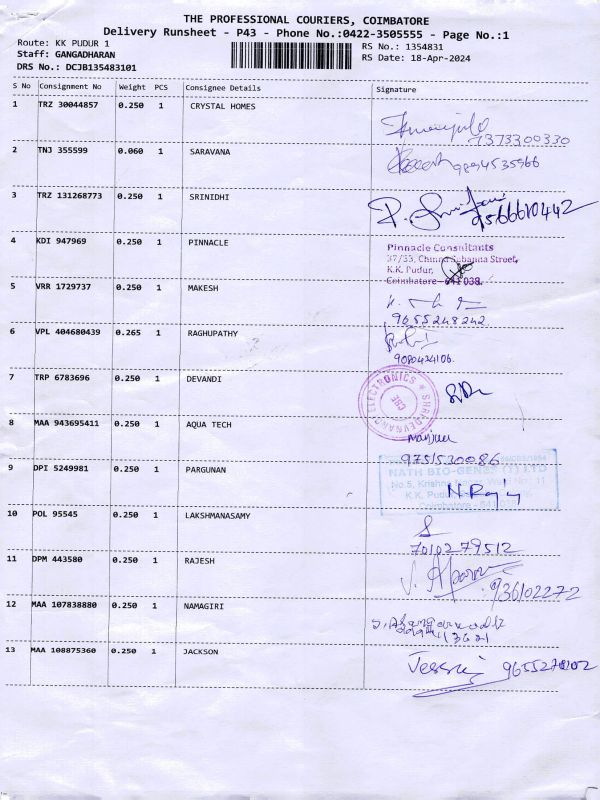 THE PROFESSIONAL COURIERS, COIMBATORE
Delivery Runsheet - P43 - Phone No.:0422-3505555 - Page No.:1
Route: KK PUDUR 1
RS No.: 1354831
Staff: GANGADHARAN
RS Date: 18-Apr-2024
DRS No.: DCJB135483101
S No Consignment No Weight PCS Consignee Details Signature
1 TRZ 30044857 0.250 1 CRYSTAL HOMES
7373300330
2 TNJ 355599 0.060 1 SARAVANA
9894535966
3 TRZ 131268773 0.250 1 SRINIDHI
9566610442
4 KDI 947969 0.250 1 PINNACLE
Pinnacle Consultants
37/33, Chinna Subanna Street,
K.K. Pudur,
Coimbatore - 641 038.
5 VRR 1729737 0.250 1 MAKESH
9655248242
6 VPL 404680439 0.265 1 RAGHUPATHY
9080424106
7 TRP 6783696 0.250 1 DEVANDI
ELECTRONICS
CBE
8 MAA 943695411 0.250 1 AQUA TECH
9751530086
9 DPI 5249981 0.250 1 PARGUNAN
NATH BIO-GENES (I) LTD
No.5, Krishna
11
K.K. Pudur
Coimbatore - 641 038
10 POL 95545 0.250 1 LAKSHMANASAMY
7010279512
11 DPM 443580 0.250 1 RAJESH
936102272
12 MAA 107838880 0.250 1 NAMAGIRI
13 MAA 108875360 0.250 1 JACKSON